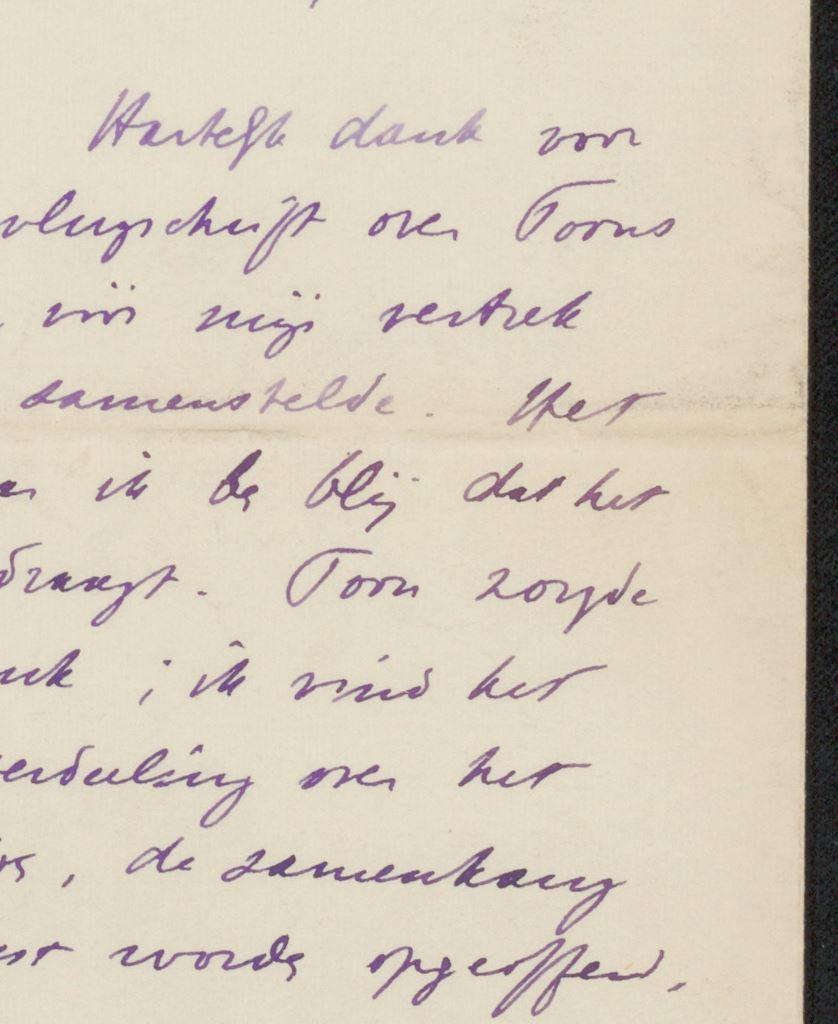 Hartelijk dank voor
vlugschrift over Toorns
vóór mijn vertrek
samenstelde. Het
ik blij dat het
draagt. Toon zorgde
; ik vind het
verdeeling over het
, de samenhang
worde opgeofferd,